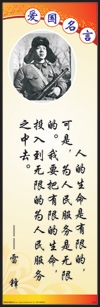 爱国名言
人的生命是有限的，
可是，为人民服务是无限
的。我要把有限的生命，
投入到无限的为人民服务
之中去。
——雷锋